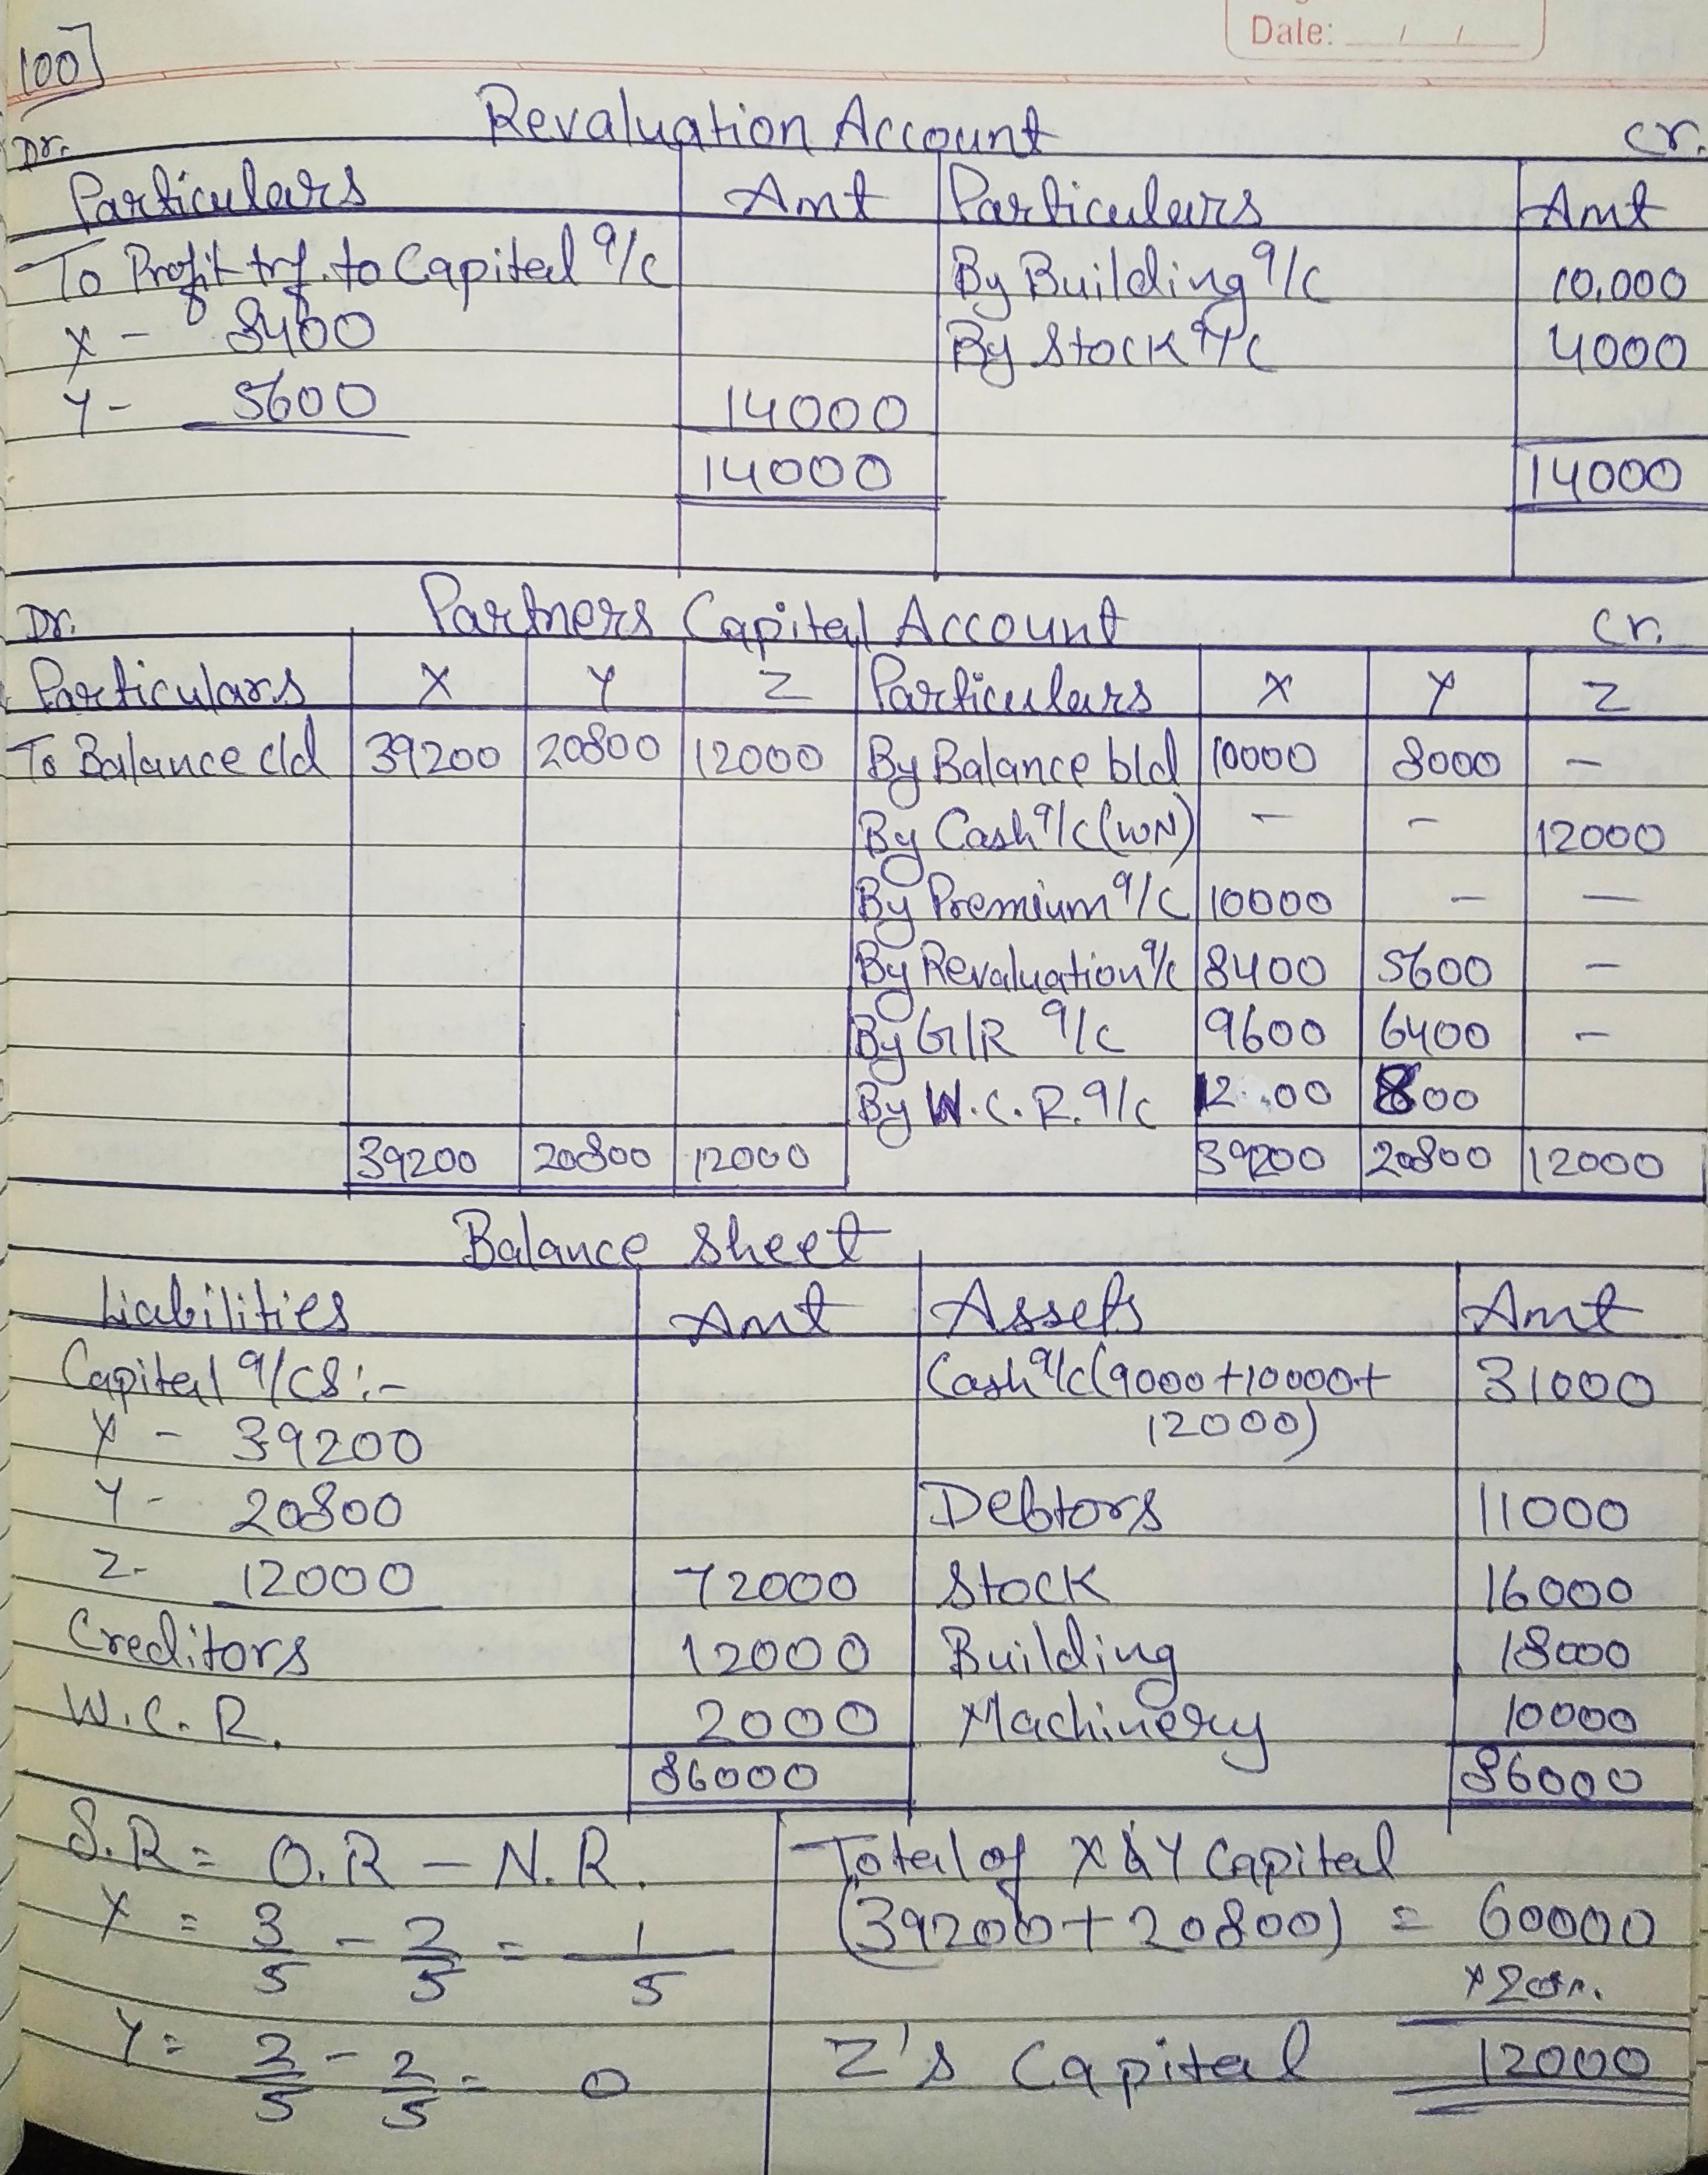 Date: / /
100]
Revaluation Account
Dr. Cr.
Particulars Amt Particulars Amt
To Profit trf. to Capital a/c By Building a/c 10,000
X - 8400 By Stock a/c 4000
Y - 5600 14000
14000 14000
Partners Capital Account
Dr. Cr.
Particulars X Y Z Particulars X Y Z
To Balance c/d 39200 20800 12000 By Balance b/d 10000 8000 -
By Cash a/c (WN) - - 12000
By Premium a/c 10000 - -
By Revaluation a/c 8400 5600 -
By G/R a/c 9600 6400 -
By W.C.R. a/c 1200 800
39200 20800 12000 39200 20800 12000
Balance Sheet
Liabilities Amt Assets Amt
Capital a/cs :- Cash a/c (9000+10000+ 31000
12000)
X - 39200
Y - 20800 Debtors 11000
Z - 12000 72000 Stock 16000
Creditors 12000 Building 18000
W.C.R. 2000 Machinery 10000
86000 86000
S.R = O.R - N.R.
X = 3/5 - 2/5 = 1/5
Y = 2/5 - 2/5 = 0
Total of X & Y Capital
(39200+20800) = 60000
×20%
Z's Capital 12000